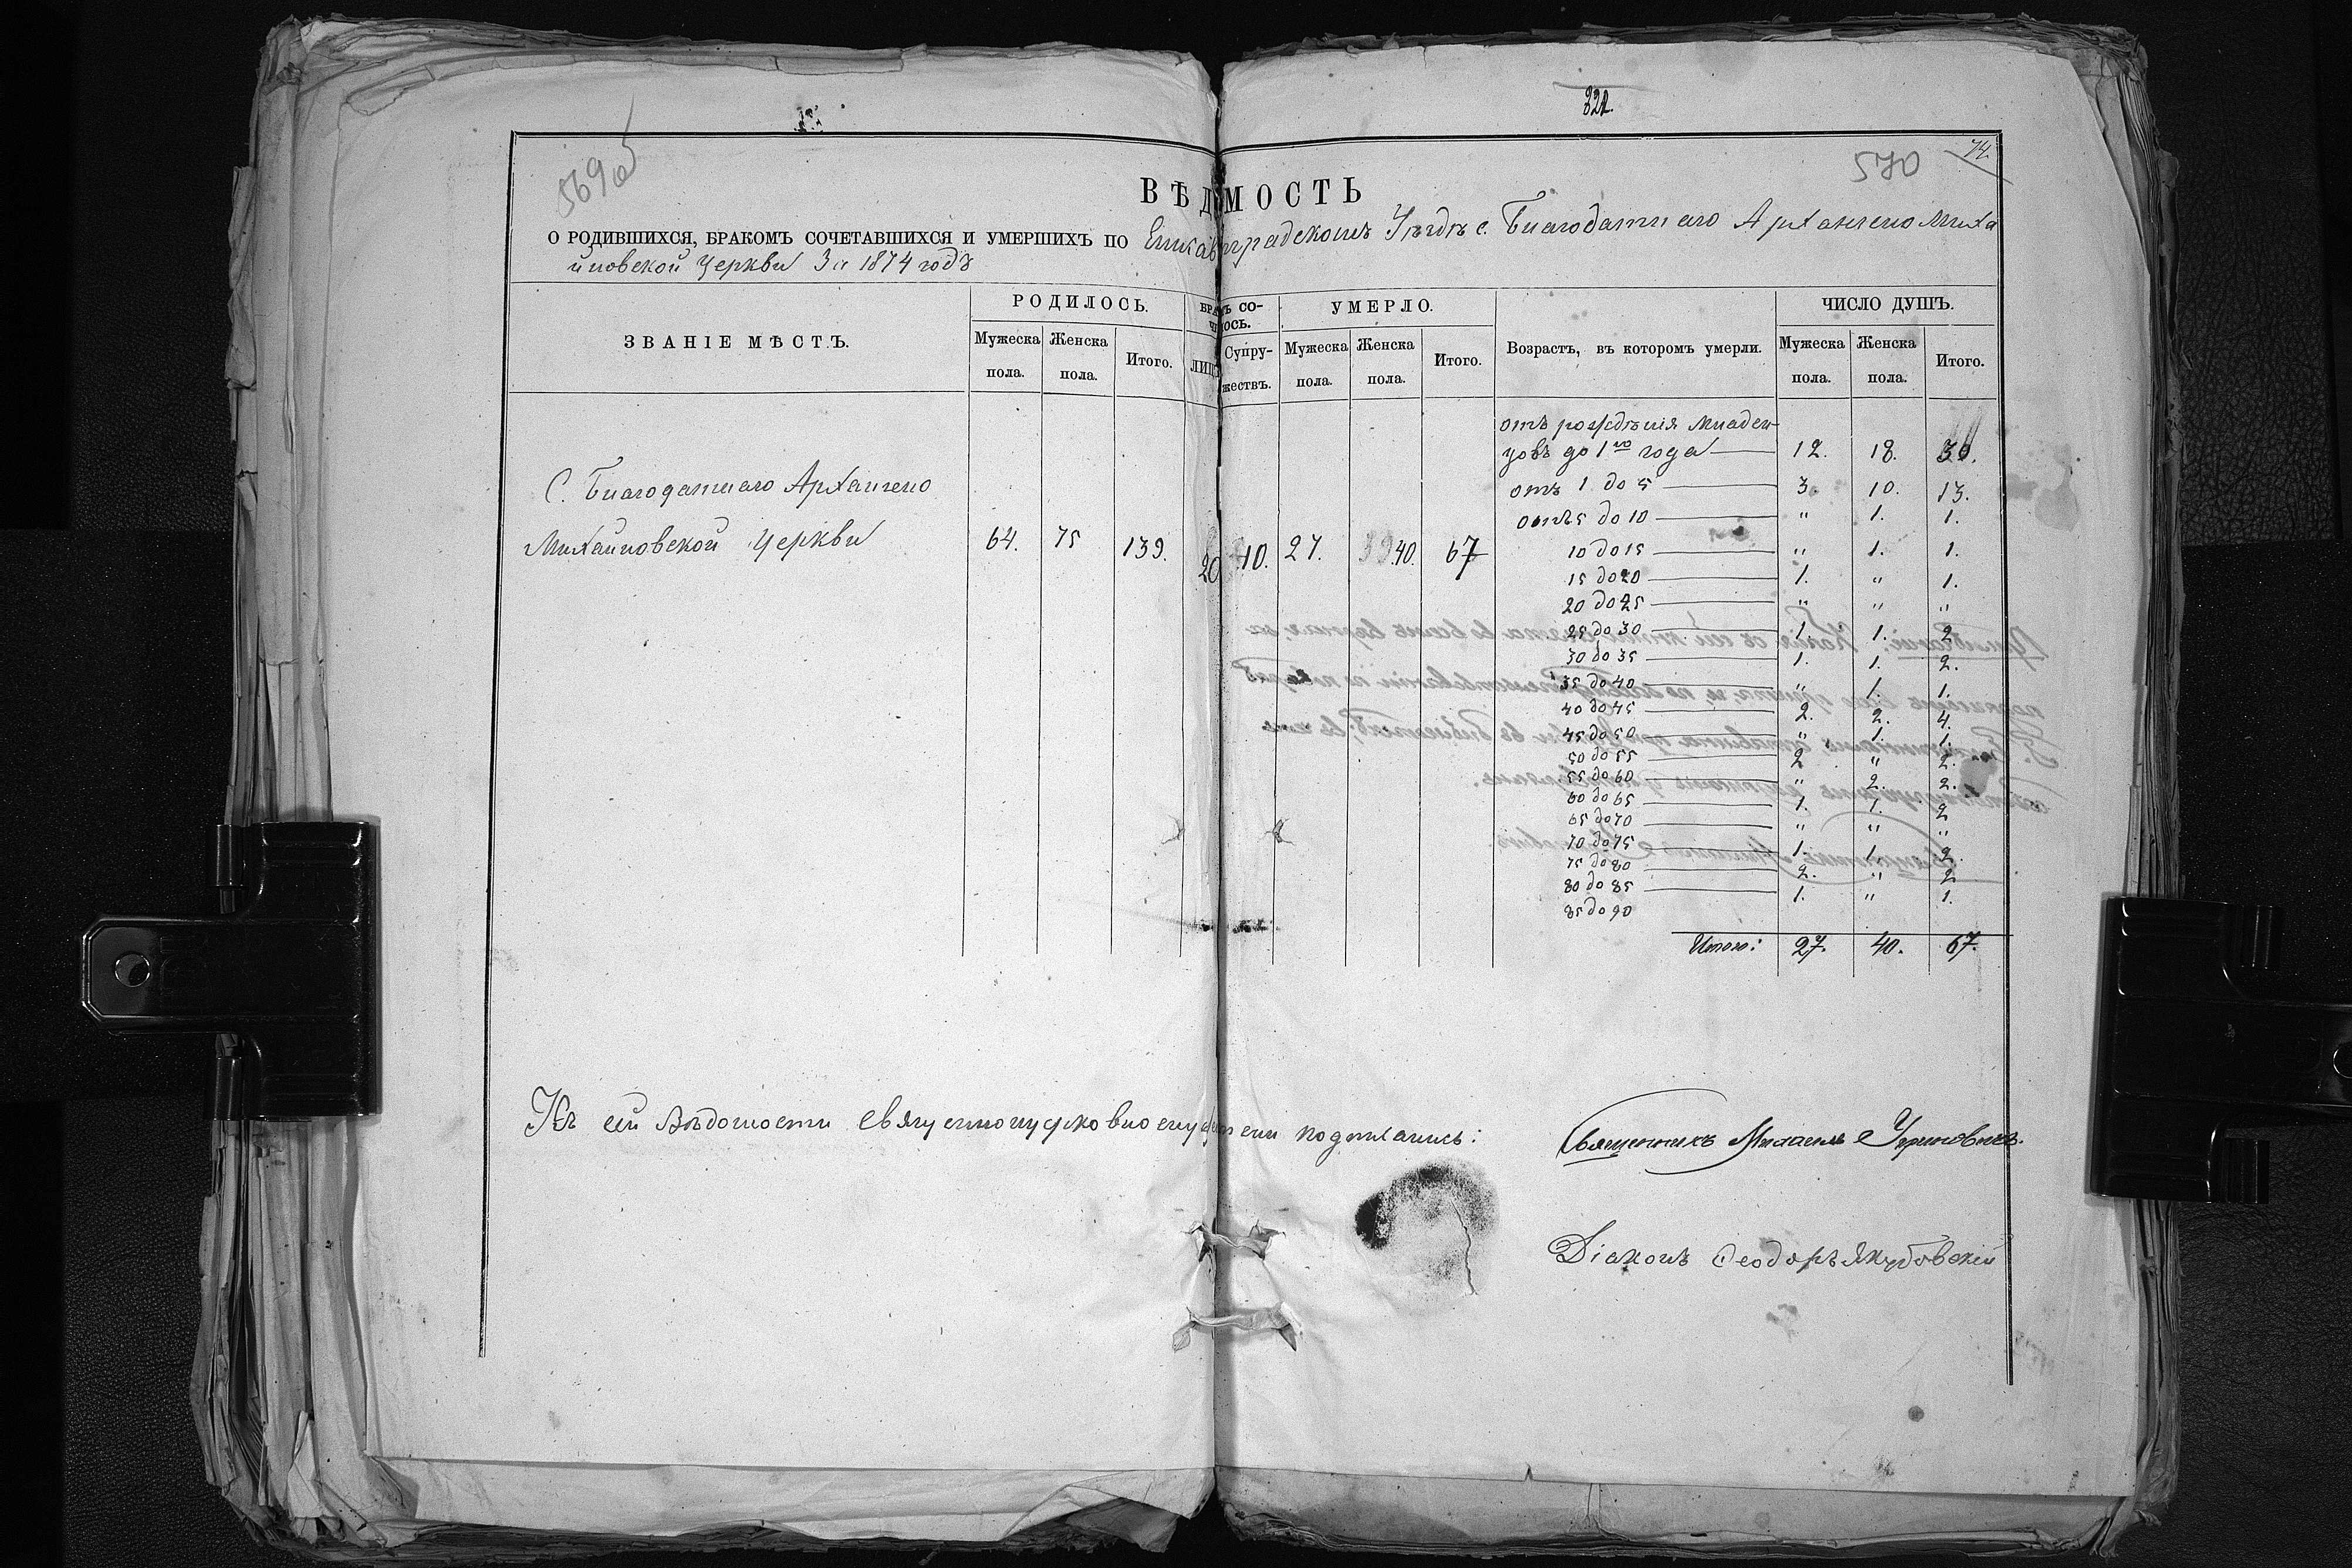 322.
569об
570
74.
ВѢДОМОСТЬ
О РОДИВШИХСЯ, БРАКОМЪ СОЧЕТАВШИХСЯ И УМЕРШИХЪ ПО Елисаветградскомъ Уѣздѣ с. Благодатнаго Архангело Миха
йловской Церкви За 1874 годъ
ЗВАНІЕ МѢСТЪ. РОДИЛОСЬ. БРАКОМЪ СО- УМЕРЛО. Возрастъ, въ которомъ умерли. ЧИСЛО ДУШЪ.
Мужеска пола. Женска пола. Итого. ЛИЦЪ Супру-жествъ. Мужеска пола. Женска пола. Итого. Мужеска пола. Женска пола. Итого.
отъ рожденія младен-
цовъ до 1го года 12. 18. 30.
С. Благодатнаго Архангело
отъ 1 до 5 3. 10. 13.
отъ 5 до 10 " 1. 1.
Михайловской Церкви 64. 75 139. 20 10. 27. 40. 67
10 до 15 " 1. 1.
15 до 20 1. " 1.
20 до 25 " " "
25 до 30 1 1. 2
30 до 35 1. 1. 2.
35 до 40 " 1. 1.
40 до 45 2. 2. 4.
45 до 50 " 1. 1.
50 до 55 2 " 2.
55 до 60 " 2. 2.
60 до 65 1. 1. 2
65 до 70 " " "
70 до 75 1. 1. 2.
75 до 80 2. " 2
80 до 85 1. " 1.
85 до 90
Итого: 27. 40. 67.
Къ сей Вѣдомости Священноцерковнослужители подписались:
Священникъ Михаилъ
Діаконъ Ѳеодоръ Якубовскій